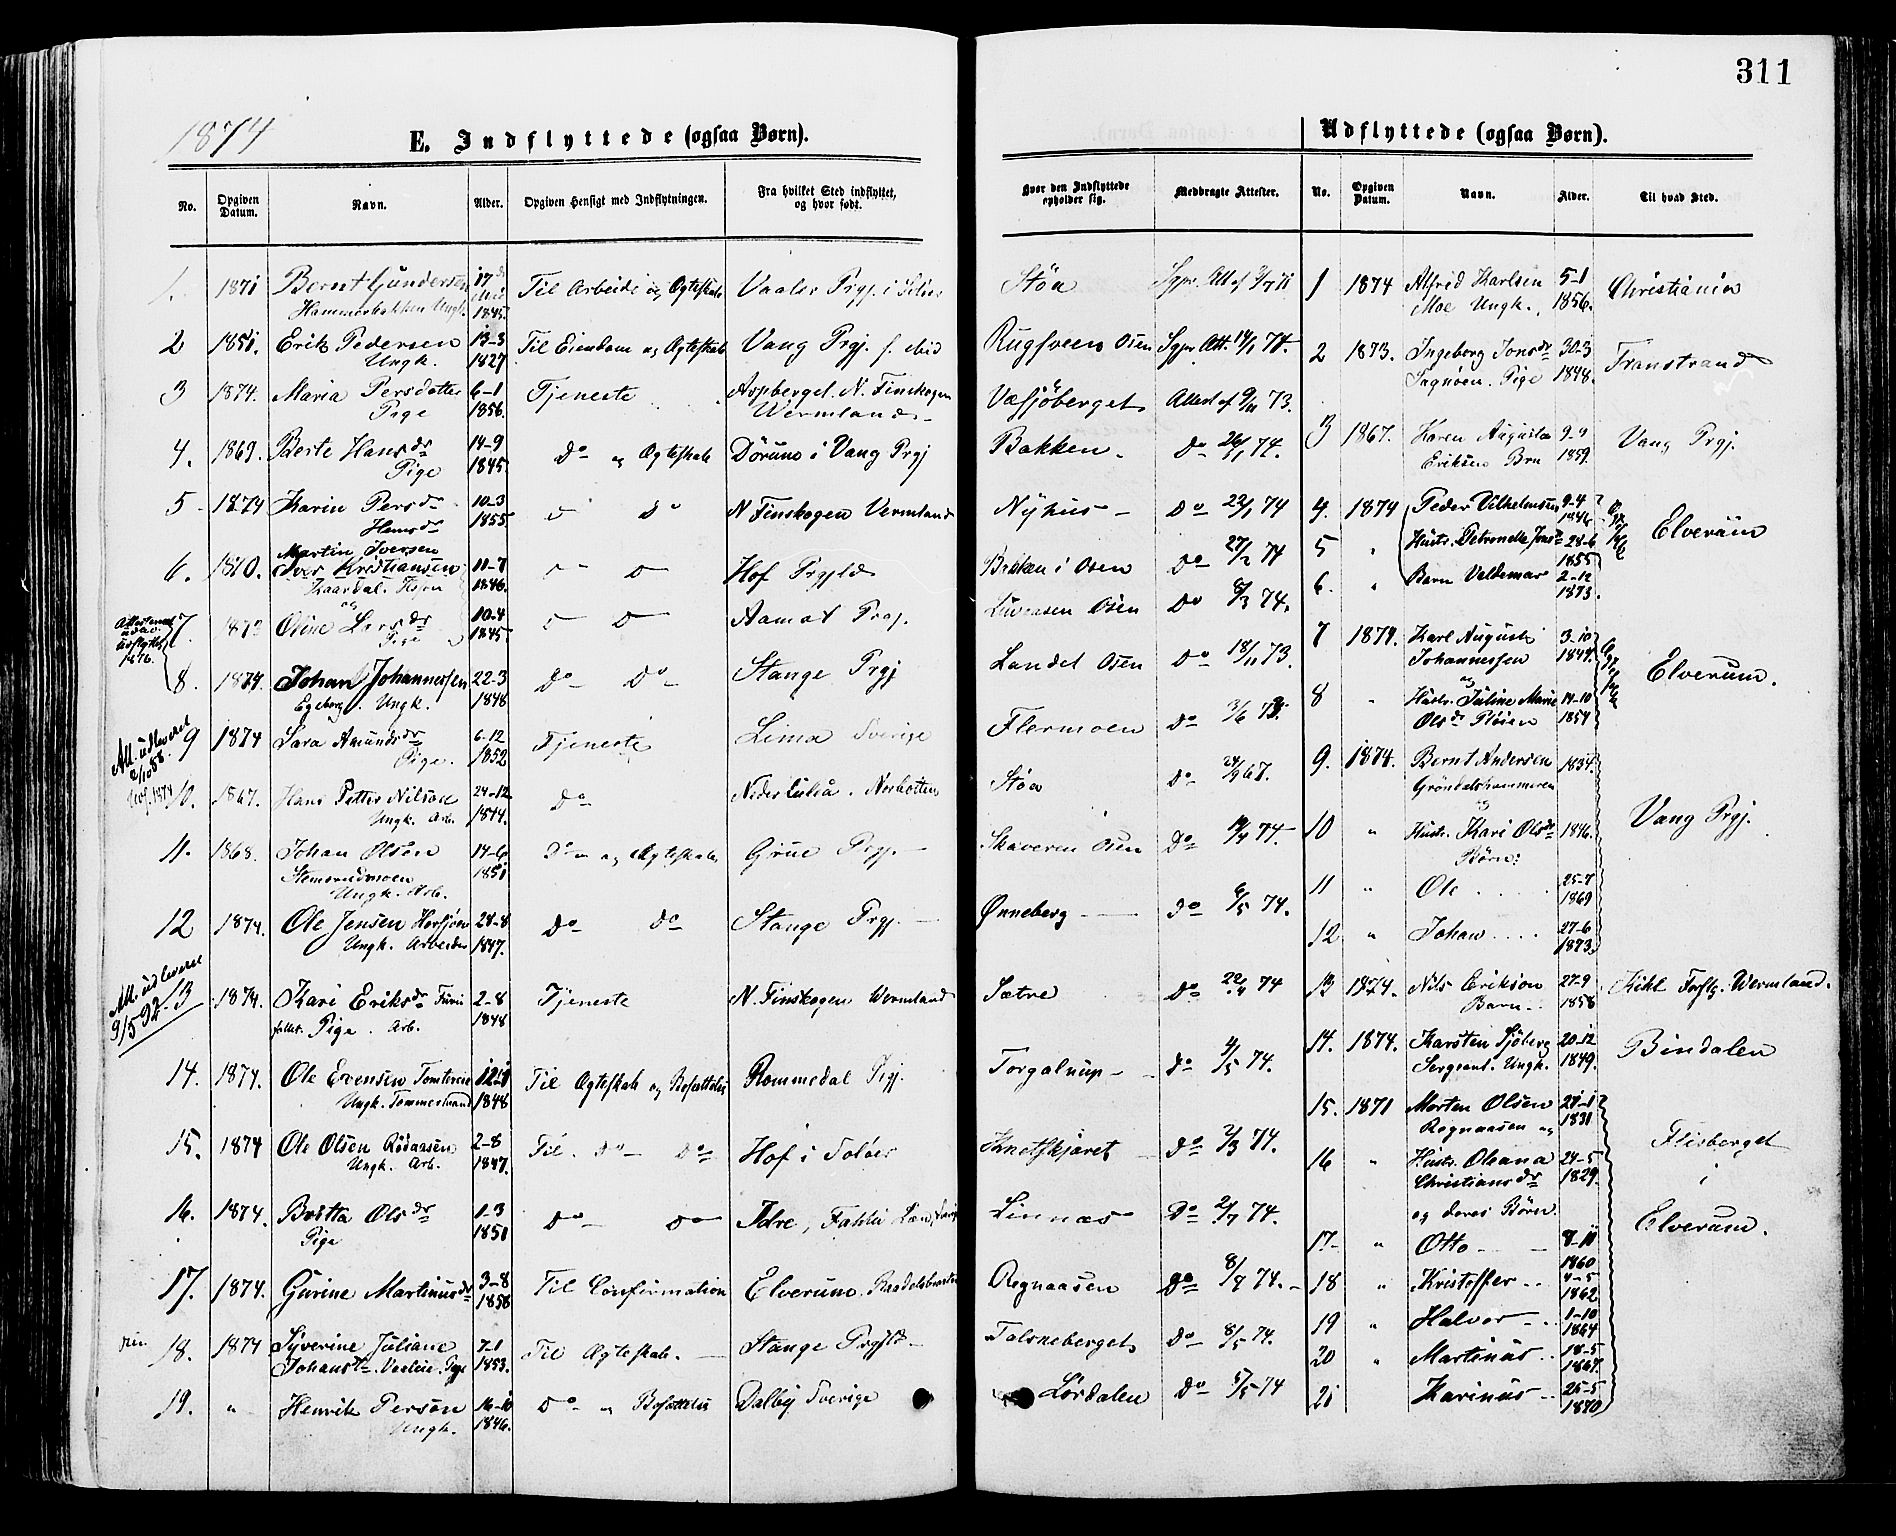 311
1874
E. Indflyttede (ogsaa Børn).
No. Opgiven Datum. Navn. Alder. Opgiven Hensigt med Indflytningen. Fra hvilket Sted indflyttet, og hvor født. Hvor den Indflyttede opholder sig. Medbragte Attester.
1. 1871 Bernt Gundersen 17 Til Arbeide og Ægteskab Vaaler Prgj. i Støa
Ungk. 1845.
2 1851. Erik Pedersen 13-3 Til Eiendom og Ægteskab Vang Prgj. Osen Att. 74.
Ungk. 1827
3 1874. Maria Persdatter 6-1 Tjeneste Aspberget N. Finskogen Attest af 73.
Pige 1856. Wermland
4. 1869. Berte Hansdr 14-9 Do og Ægteskab i Vang Prgj Bakken. Do 26/1 74.
Pige 1845.
5 1874 Karin Persdr 10-3 Do N Finskogen Vermland Nyhus Do 74
Hansdr 1855
6. 1870. Martin Iversen
Iver Kristiansen 11-7 Hof Prgjld Bakken i Osen Do 27/2 74
1846.
og
7. Oline Larsdr 10-4 Aamot Prgj. Osen Do 8/3 74.
Pige 1845
1876.
8. 1874. Johan Johannessen 22-3 Do Do Stange Prgj Landet Osen Do 18/11 73.
Ungk. 1848
Att. udleveret
9 1874 Sara Amundsdr 6-12 Tjeneste Lima Sverige Flermoen Do
Pige. 1852
10. 1867. Hans Petter Nilsson 24-12 Do Neder Luleå. Norbotten Støa Do 67.
Ungk. Arb. 1844.
11. 1868. Johan Olsen 14-6 Do og Ægteskab Grue Prgj. Skaveren Osen Do 74.
Ungk. Arb. 1851
12 1874. Ole Jensen 28-8 Do Do Stange Prgj. Ønneberg Do 6/5 74.
Ungk. Arbeider 1847.
Att. udleveret
9/5 92
13 1874. Kari Eriksdr 2-8 Tjeneste N. Finskogen Wermland Sætre Do 22/4 74
Pige. Arb. 1848
14. 1874. Ole Evensen 12-1 Til Ægteskab og Bosættelse Rommedal Prgj. Do 4/5 74.
Ungk. Tømmermand 1848
15. 1874 Ole Olsen Rødaasen 2-8 Til Do Do Hof i Soløer Do 2/3 74.
Ungk. Arb. 1847.
16. 1874. Britta Olsdr 1-3 Do Do Idre, Linnæs Do 2/7 74.
Pige 1851
17. 1874. Gurine Martinusdr 3-8 Til Confirmation Elverum. Rognaasen Do 74.
1858
18. 1874 Syverine Juliane 7-1 Til Ægteskab. Stange Prgjld Falsneberget Do 8/5 74.
Johansdr Pige 1853.
19. " Henrik Person 16-10 Do " Bosættelse Dalby Sverige Lørdalen Do 5/5 74
Ungk. 1846.
Udflyttede (ogsaa Børn).
No. Opgiven Datum. Navn. Alder. Til hvad Sted.
1 1874 Alfred Karlsen 5-1 Christiania
Moe Ungk. 1856.
2 1873. Ingeborg Jonsdr 30-3 Transtrand
Pige 1848.
3 1867. Karen Augusta 9-9 Vang Prgj.
Eriksen Brn 1859.
4. 1874 Peder Vilhelmsen 9-4 Elverum
1846
5 " Hustr. Petronella Jonsdr 28-6
1855
6. " Barn Valdemar 2-12
1873.
7 1874. Karl August 3-10 Elverum.
Johannessen 1847.
og
8 " Hustr. Juline Marie 14-10
Olsdr 1854
9. 1874. Bernt Andersen 1834. Vang Prgj.
Gröndalshammeren
og
10 " Hustr. Kari Olsdr 1846.
Børn:
11 " Ole 25-7
1869
12 " Johan 27-6
1873.
13 1874. Nils Erikson 27-9 Wermland.
Barn 1858
14. 1874. Karsten Sjøberg 20-12 Bindalen
Sergeant. Ungk. 1849.
15. 1871 Morten Olsen 28-1 Flisberget
Rognaasen og 1831 i
16 " Hustr. Oleana 24-5 Elverum.
Christiansdr 1829.
og deres Børn.
17 " Otto 8-11
1860
18 " Kristoffer 4-5
1862
19 " Halvor 1-10
1864
20 " Martinus 18-5
1867.
21 Karinus 25-5
1870